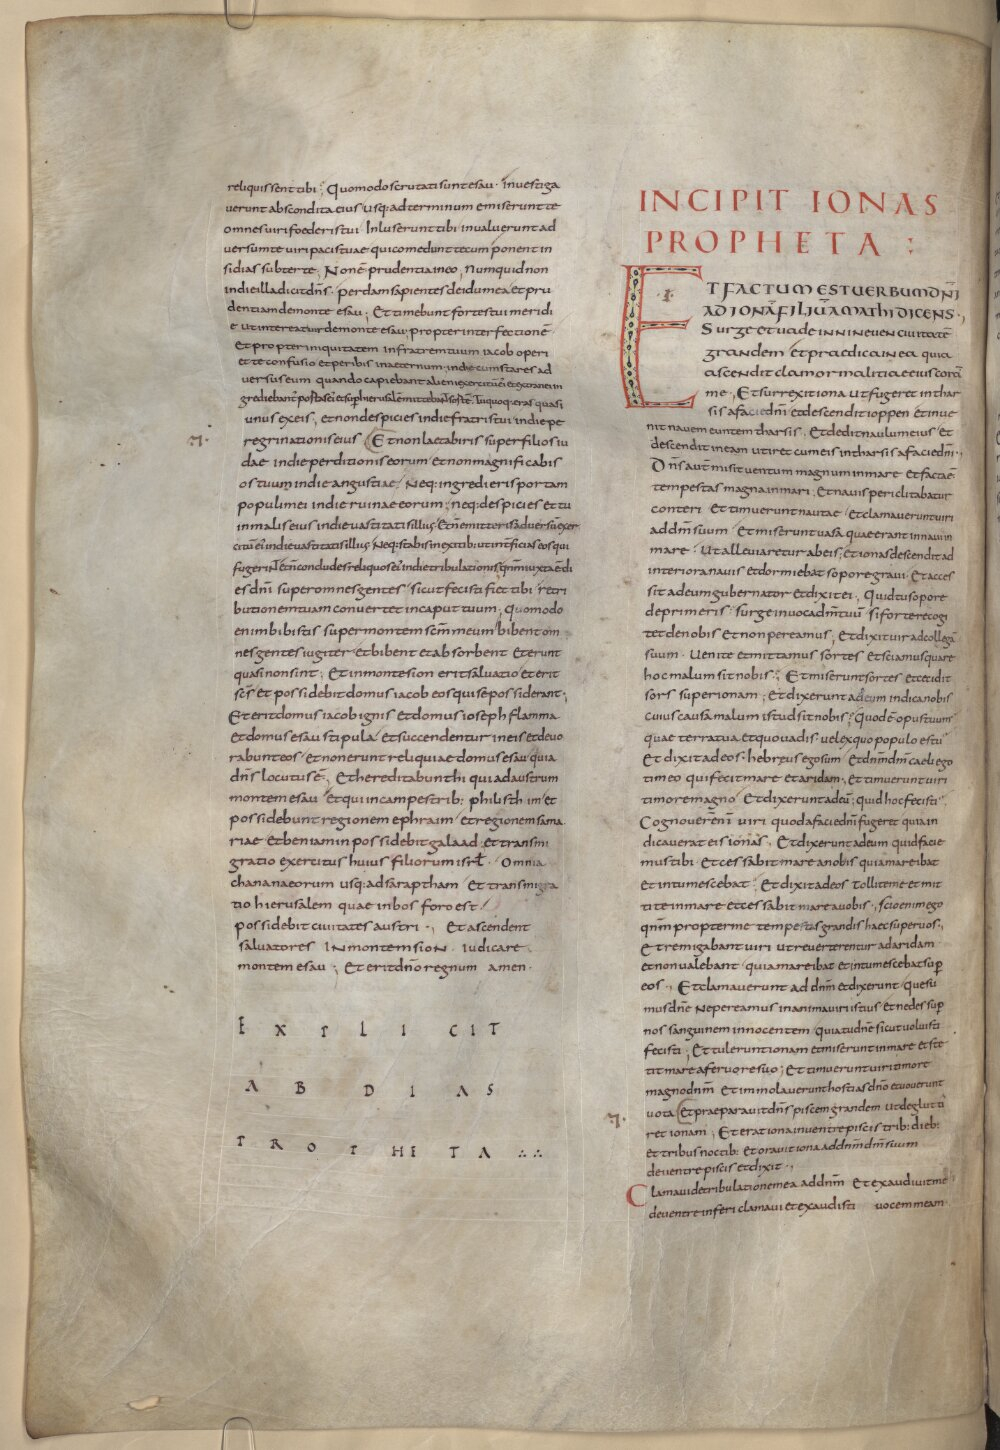 reliquissent tibi; Quomodo scrutati sunt esau. Investiga
verunt abscondita eius usq: ad terminum emiserunt te
omnes viri foederis tui Inluserunt tibi invaluerunt ad
versum te viri pacis tuae qui comedunt tecum ponent in
sidias subter te; Non ē prudentia in eo; Numquid non
in die illa dicit dn̄s. perdam sapientes de idumea et pru
dentiam de monte esau; Et timebunt fortes tui meridi
e ut intereat vir de monte esau; propter interfectionē
Et propter iniquitatem in fratrem tuum iacob operi
et te confusio et peribis in aeternum. in die cum stares ad
versus eum quando capiebant alieni exercitū ei et extranei in
grediebant portas ei et sup hierusalem mittebant sortē. Tu quoq: eras quasi
unus ex eis; et non despicies in die fratris tui in die pe
regrinationis eius Et non laetaberis super filios iu
dae in die perditionis eorum et non magnificabis
os tuum in die angustiae; Neq: ingredieris portam
populi mei in die ruinae eorum; neq: despicies et tu
in malis eius in die vastitatis illius; Et n̄ emitteris adversū exer
citū eī in die vastitatis illius Neq: stabis in exitibus ut interficias eos qui
fugerint et n̄ concludes reliquos eī in die tribulationis qnm̄ iuxta ē di
es dn̄i super omnes gentes; sicut fecisti fiet tibi retri
butionem tuam convertet in caput tuum; Quomodo
enim bibistis super montem sc̄m meum bibent om
nes gentes iugiter et bibent et absorbent et erunt
quasi non sint; Et in monte sion erit salvatio et erit
sc̄s et possidebit domus iacob eos qui se possiderant;
Et erit domus iacob ignis et domus ioseph flamma
et domus esau stipula et succendentur in eis et devo
rabunt eos et non erunt reliquiae domus esau quia
dn̄s locutus ē; Et hereditabunt hi qui ad austrum
montem esau et qui in campestrib: philisthiim et
possidebunt regionem ephraim et regionem sama
riae et beniamin possidebit galaad et transmi
gratio exercitus huius filiorum isrł Omnia
chananaeorum usq: ad saraptham Et transmigra
tio hierusalem quae in bosforo est
possidebit civitates austri; Et ascendent
salvatores IN montem sion iudicare
montem esau; Et erit dn̄o regnum amen.
EXPLICIT
ABDIAS
PROPHETA
INCIPIT IONAS
PROPHETA
.I.
ET FACTUM EST UERBUM DN̄I
AD IONĀ FILIŪ AMATHI DICENS.
Surge et uade IN NINEUEN civitatē
grandem et praedica in ea quia
ascendit clamor malitiae eius corā
me; Et surrexit iona ut fugeret in thar
sis a facie dn̄i et descendit ioppen et inue
nit nauem euntem tharsis. Et dedit naulum eius et
descendit in eam ut iret cum eis in tharsis a facie dn̄i
Dn̄s aut̄ misit ventum magnum in mare et facta ē
tempestas magna in mari. Et nauis periclitabatur
conteri Et timuerunt nautae et clamauerunt uiri
ad dm̄ suum Et miserunt uasa quae erant in naui in
mare Ut alleuiaretur ab eis; et ionas descendit ad
interiora nauis et dormiebat sopore graui. Et acces
sit ad eum gubernator et dixit ei; Quid tu sopore
deprimeris surge inuoca dm̄ tuū si forte recogi
tet de nobis et non pereamus; Et dixit uir ad collegā
suum. Uenite et mittamus sortes et sciamus quare
hoc malum sit nobis; Et miserunt sortes et cecidit
sors super ionam; Et dixerunt ad eum indica nobis
cuius causa malum istud sit nobis? Quod ē opus tuum
quae terra tua et quo uadis vel ex quo populo es tu
Et dixit ad eos hebreus ego sum Et dn̄m dm̄ caeli ego
timeo qui fecit mare et aridam. Et timuerunt uiri
timore magno Et dixerunt ad eū; quid hoc fecisti
Cognouer̄ enī uiri quod a facie dn̄i fugeret quia in
dicauerat eis ionas; Et dixerunt ad eum quid facie
mus tibi Et cessabit mare a nobis quia mare ibat
et intumescebat; Et dixit ad eos Tollite me et mit
tite in mare et cessabit mare a uobis; scio enim ego
qnm̄ propter me tempestas grandis haec super uos;
Et remigabant uiri ut reuerterentur ad aridam
et non ualebant quia mare ibat et intumescebat sup
eos; Et clamauerunt ad dn̄m et dixerunt quesu
mus dn̄e Ne pereamus in anima uiri istius et ne des sup
nos sanguinem innocentem quia tu dn̄e sicut uoluisti
fecisti; Et tulerunt ionam et miserunt in mare et ste
tit mare a feruore suo; Et timuerunt uiri timore
magno dn̄m Et immolauerunt hostias dn̄o et uouerunt
uota Et praeparauit dn̄s piscem grandem ut degluti
ret ionam; Et erat iona in uentre piscis trib: dieb:
et tribus noctib: Et orauit iona ad dn̄m dm̄ suum
de uentre piscis et dixit;
Clamaui de tribulatione mea ad dn̄m Et exaudiuit me
de uentre inferi clamaui et exaudisti uocem meam